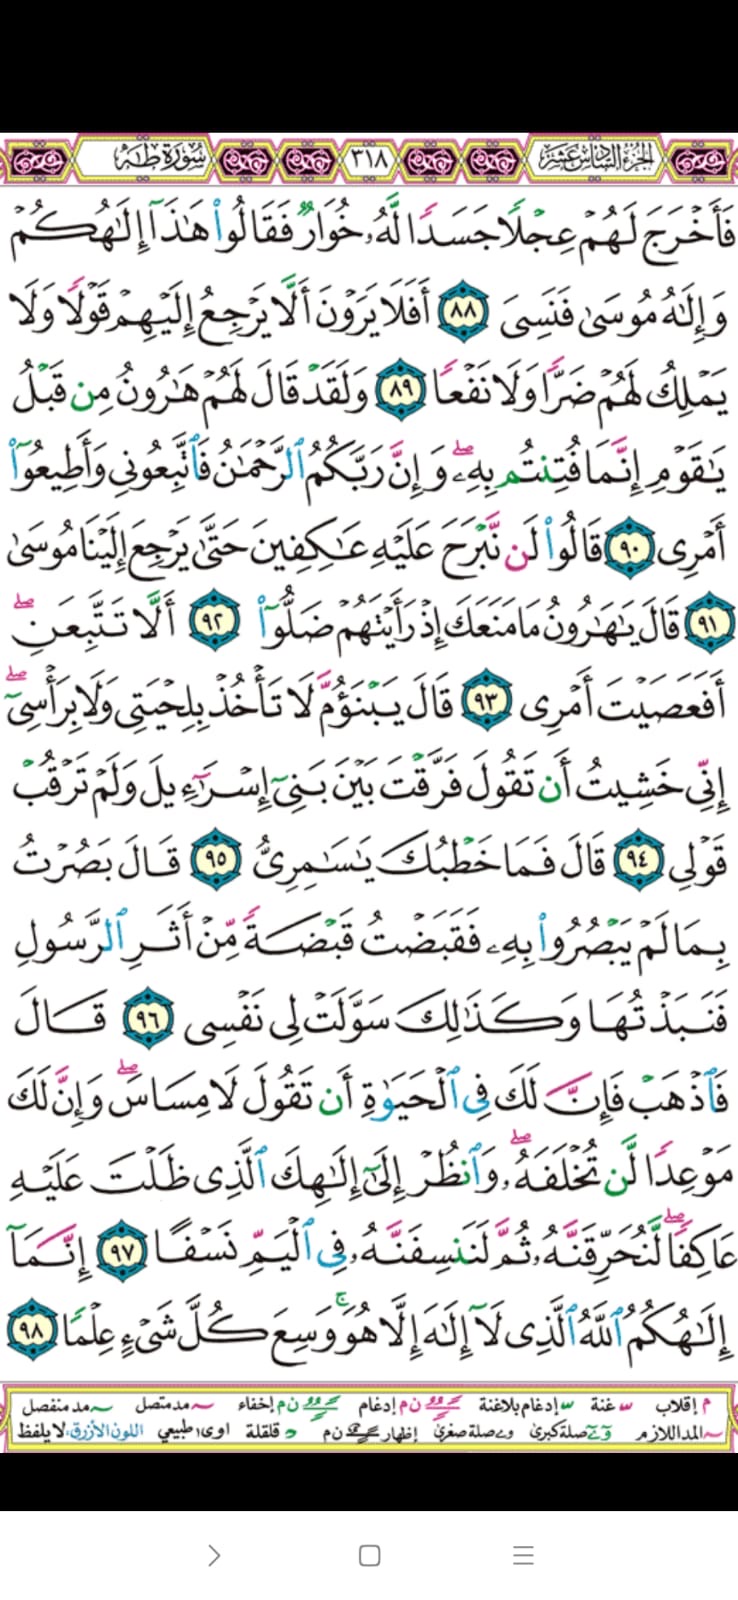 الجزء السادس عشر ٣١٨ سورة طه
فَأَخْرَجَ لَهُمْ عِجْلًا جَسَدًا لَّهُۥ خُوَارٌ فَقَالُوا۟ هَٰذَآ إِلَٰهُكُمْ
وَإِلَٰهُ مُوسَىٰ فَنَسِىَ ٨٨ أَفَلَا يَرَوْنَ أَلَّا يَرْجِعُ إِلَيْهِمْ قَوْلًا وَلَا
يَمْلِكُ لَهُمْ ضَرًّا وَلَا نَفْعًا ٨٩ وَلَقَدْ قَالَ لَهُمْ هَٰرُونُ مِن قَبْلُ
يَٰقَوْمِ إِنَّمَا فُتِنتُم بِهِۦ ۖ وَإِنَّ رَبَّكُمُ ٱلرَّحْمَٰنُ فَٱتَّبِعُونِى وَأَطِيعُوٓا۟
أَمْرِى ٩٠ قَالُوا۟ لَن نَّبْرَحَ عَلَيْهِ عَٰكِفِينَ حَتَّىٰ يَرْجِعَ إِلَيْنَا مُوسَىٰ
٩١ قَالَ يَٰهَٰرُونُ مَا مَنَعَكَ إِذْ رَأَيْتَهُمْ ضَلُّوٓا۟ ٩٢ أَلَّا تَتَّبِعَنِ ۖ
أَفَعَصَيْتَ أَمْرِى ٩٣ قَالَ يَبْنَؤُمَّ لَا تَأْخُذْ بِلِحْيَتِى وَلَا بِرَأْسِىٓ ۖ
إِنِّى خَشِيتُ أَن تَقُولَ فَرَّقْتَ بَيْنَ بَنِىٓ إِسْرَٰٓءِيلَ وَلَمْ تَرْقُبْ
قَوْلِى ٩٤ قَالَ فَمَا خَطْبُكَ يَٰسَٰمِرِىُّ ٩٥ قَالَ بَصُرْتُ
بِمَا لَمْ يَبْصُرُوا۟ بِهِۦ فَقَبَضْتُ قَبْضَةً مِّنْ أَثَرِ ٱلرَّسُولِ
فَنَبَذْتُهَا وَكَذَٰلِكَ سَوَّلَتْ لِى نَفْسِى ٩٦ قَالَ
فَٱذْهَبْ فَإِنَّ لَكَ فِى ٱلْحَيَوٰةِ أَن تَقُولَ لَا مِسَاسَ ۖ وَإِنَّ لَكَ
مَوْعِدًا لَّن تُخْلَفَهُۥ ۖ وَٱنظُرْ إِلَىٰٓ إِلَٰهِكَ ٱلَّذِى ظَلْتَ عَلَيْهِ
عَاكِفًا ۖ لَّنُحَرِّقَنَّهُۥ ثُمَّ لَنَنسِفَنَّهُۥ فِى ٱلْيَمِّ نَسْفًا ٩٧ إِنَّمَآ
إِلَٰهُكُمُ ٱللَّهُ ٱلَّذِى لَآ إِلَٰهَ إِلَّا هُوَ ۚ وَسِعَ كُلَّ شَىْءٍ عِلْمًا ٩٨
م إقلاب غنة إدغام بلاغنة ن م إدغام ن م إخفاء مد متصل مد منفصل
المد اللازم صلة كبرى صلة صغرى إظهار ن م قلقلة اوى طبيعي اللون الأزرق: لا يلفظ